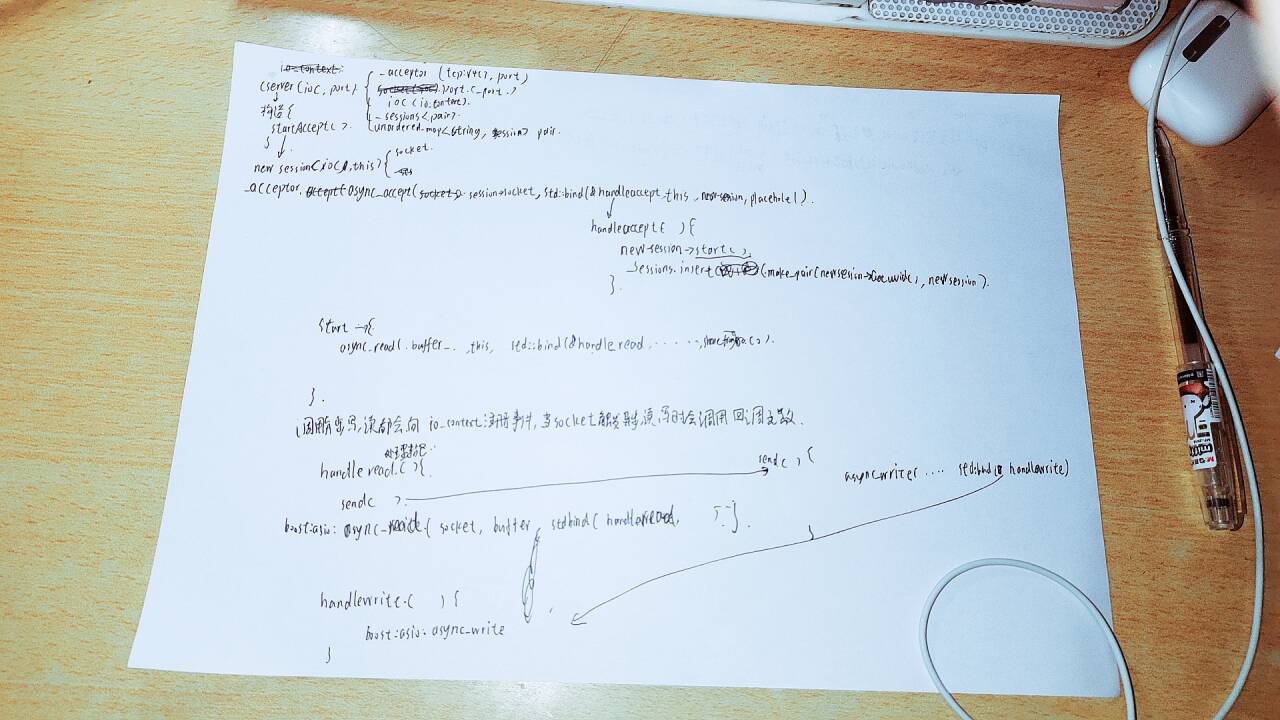 CServer(ioc, port) { _acceptor (tcp::v4(), port)
port(_port)
构造{ ioc (io_context).
_sessions<pair>.
startAccept(). unordered_map<string, session> pair.
}
new session(ioc, this) { socket.
_acceptor. async_accept( session->socket, std::bind(&handleaccept, this, newsession, placehole1).
handleaccept( ) {
new-session->start(),
_sessions.insert( (make_pair(newsession-> , newsession).
}.
start -> {
async_read(. buffer_.. ,this, std::bind(&handle_read, .....,
}.
读都会向 io_context 注册事件, 当socket 读写时会调用回调函数.
handle read.( ){ send( ) {
asyncwrite .... std::bind(& handlewrite)
send( ).
boost::asio: async_read( socket, buffer std::bind( handleread, }.
handlewrite.( ) {
boost::asio: async_write
}